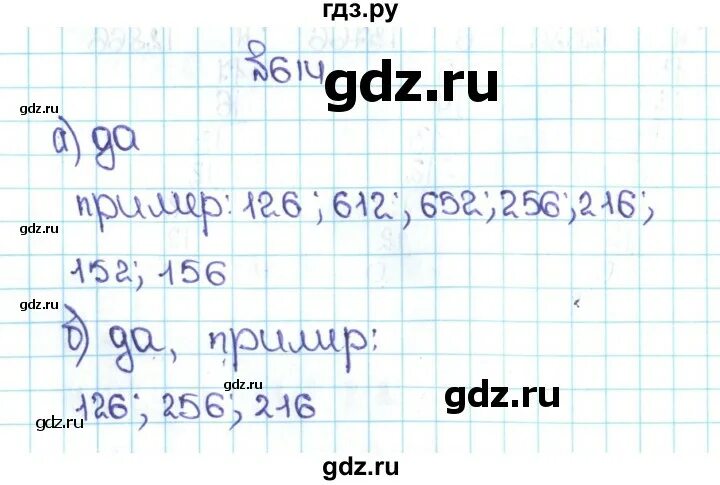 гдз.ру
№614
gdz.ru
gdz.ru
а) да
пример: 126; 612; 652; 256; 216;
gdz.ru
152; 156
gdz.ru
б) да, пример:
gdz.ru
gdz.ru
126; 256; 216
gdz.ru
gdz.ru